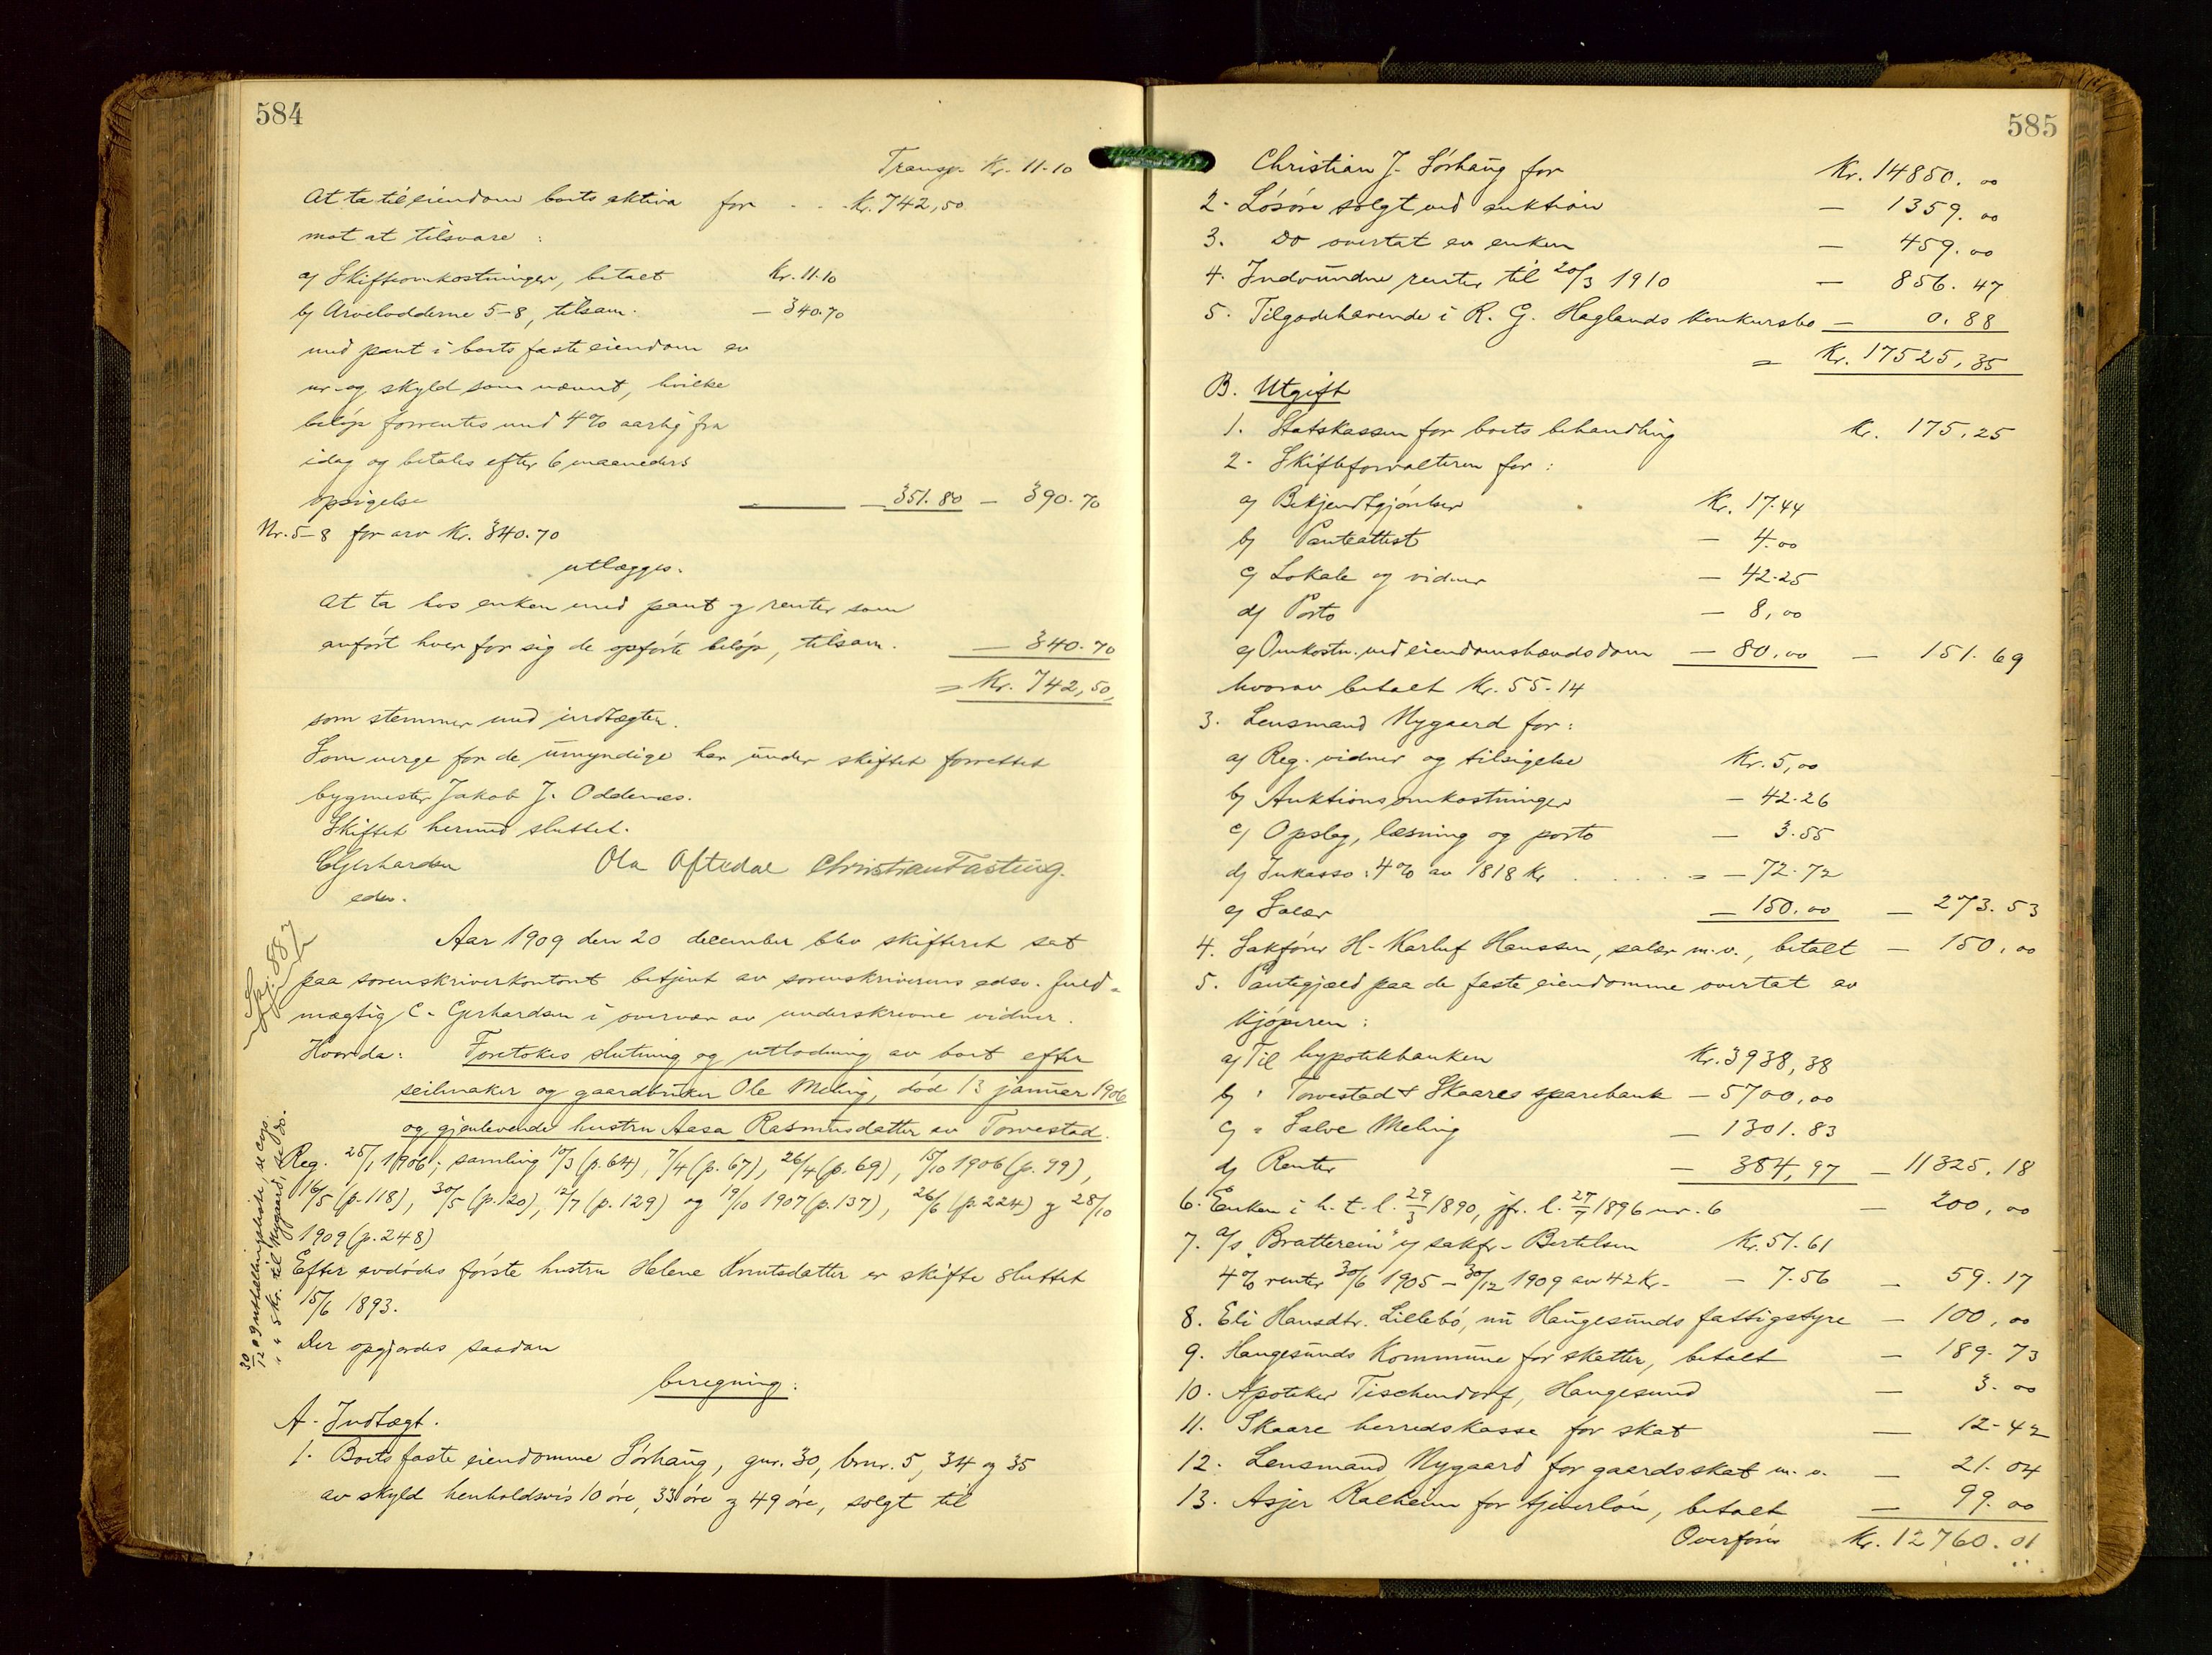 584
Transp. Kr. 11.10
At ta til eiendom boets aktiva for . . . Kr. 742,50
mot at tilsvare :
a) Skifteomkostninger, betalt Kr. 11.10
b) Arvelodderne 5-8, tilsam. — 340.70
med pant i boets faste eiendom av
nr. og skyld som nævnt, hvilke
beløp forrentes med 4% aarlig fra
idag og betales efter 6 maaneders
opsigelse — 351.80 — 390.70
Nr. 5-8 for arv Kr. 340.70
utlægges.
At ta hos enken med pant og renter som
anført hver for sig de opførte beløp, tilsam. — 340.70
= Kr. 742,50,
som stemmer med indtægten.
Som verge for de umyndige har under skiftet forrettet
bygmester Jakob J. Oddenes.
Skiftet hermed sluttet.
CGerhardsen Ola Aftedal Christian Fasting.
edsv.
Aar 1909 den 20 december blev skifteret sat
paa sorenskriverkontoret betjent av sorenskriverens edsv. fuld-
mægtig C. Gerhardsen i overvær av underskrevne vidner.
Hvorda: Foretokes slutning og utlodning av boet efter
seilmaker og gaardbruker Ole Meling, død 13 januar 1906
og gjenlevende hustru Aasa Rasmusdatter av Torvestad.
Reg. 25/1 1906; samling 10/3 (p. 64), 7/4 (p. 67), 26/4 (p. 69), 15/10 1906 (p. 99),
16/5 (p. 118), 30/5 (p. 120), 12/7 (p. 129) og 19/10 1907 (p. 137), 26/6 (p. 224) og 28/10
1909 (p. 248)
Efter avdødes første hustru Helene Knutsdatter er skifte sluttet
15/6 1893.
Der opgjordes saadan
beregning:
A. Indtægt.
1. Boets faste eiendomme Sørhaug, gnr. 30, brnr. 5, 34 og 35
av skyld henholdsvis 10 øre, 33 øre og 49 øre, solgt til
30/12 09 utbetalingsliste, se cop.
" " Skr. til Nygaard, se do.
585
Christian J. Sørhaug for Kr. 14850.00
2. Løsøre solgt ved auktion — 1359.00
3. Do overtat av enken — 459.00
4. Indvundne renter til 20/3 1910 — 856.47
5. Tilgodehavende i R. G. Haglands konkursbo — 0.88
= Kr. 17525,35
B. Utgift
1. Statskassen for boets behandling Kr. 175,25
2. Skifteforvalteren for :
a) Bekjendtgjørelser Kr. 17.44
b) Panteattest — 4.00
c) Lokale og vidner — 42.25
d) Porto — 8,00
e) Omkostn. ved eiendomshævdsdom — 80,00 — 151.69
hvorav betalt Kr. 55.14
3. Lensmand Nygaard for :
a) Reg. vidner og tilsigelse Kr. 5,00
b) Auktionsomkostninger — 42.26
c) Opslag, læsning og porto — 3.55
d) Inkasso : 4% av 1818 Kr . . . . = — 72.72
e) Salær — 150.00 — 273.53
4. Sakfører H. Karluf Hanssen, salær m.v., betalt — 150,00
5. Pantegjæld paa de faste eiendomme overtat av
kjøperen :
a) Til hypotekbanken Kr. 3938,38
b) " Torvestad & Skaares sparebank — 5700,00
c) " Salve Meling — 1301.83
d) Renter — 384,97 — 11325.18
6. Enken i h. t. l. 29/3 1890, jfr. l. 27/7 1896 nr. 6 — 200,00
7. A/s "Bratterein" v/ sakfr. Bertelsen Kr. 51.61
4% renter 30/6 1905 – 30/12 1909 av 42 Kr. — 7.56 — 59.17
8. Eli Hansdtr. Lillebø, nu Haugesunds fattigstyre — 100,00
9. Haugesunds Kommune for skatter, betalt — 189.73
10. Apoteker Tischendorf, Haugesund — 3.00
11. Skaare herredskasse for skat — 12.42
12. Lensmand Nygaard for gaardsskat m.v. — 21.04
13. Asjer Kalheim for tjenerløn, betalt — 99.00
Overføres Kr. 12760.01